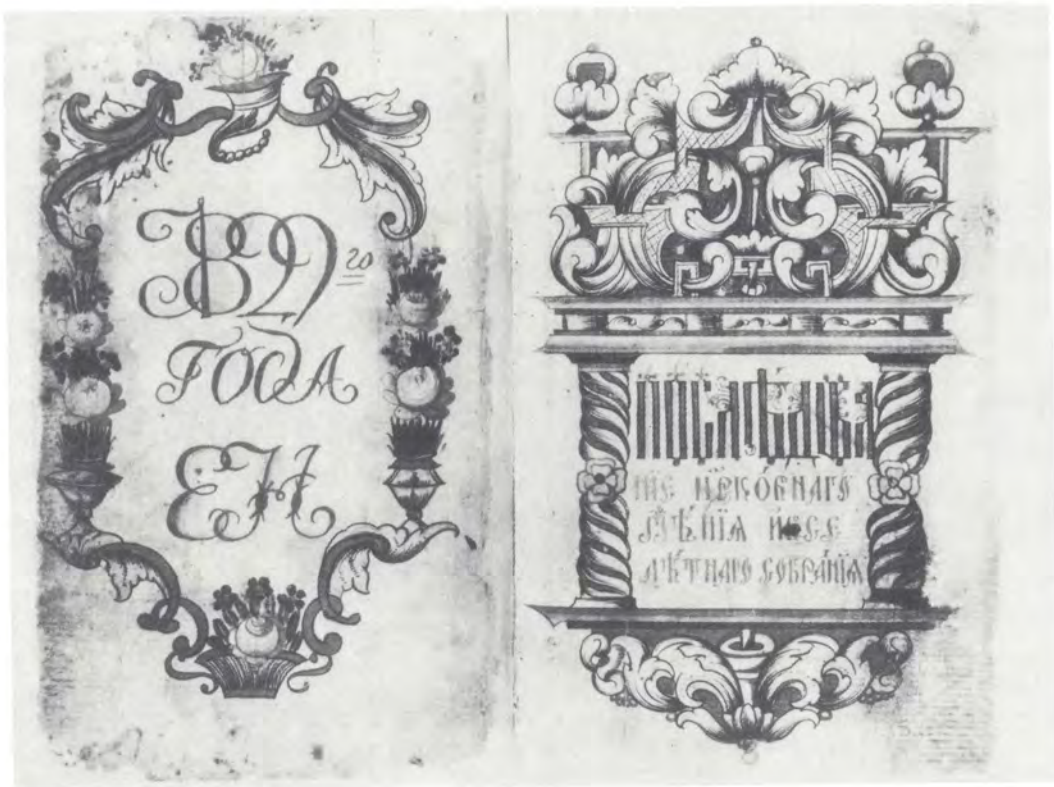 1829 го
года
ЕН
Послѣдова
нїе црковнаго
пѣнїѧ и все
лѣтнаго собра́нїѧ